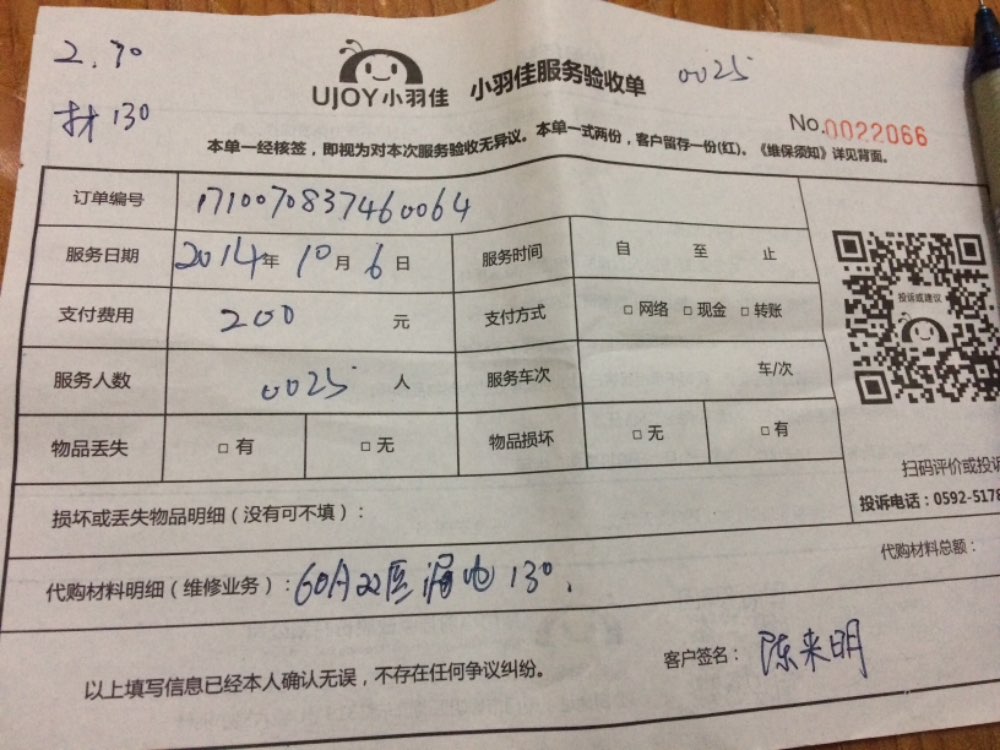 2.30
材130
UJOY小羽佳 小羽佳服务验收单 0025
No.0022066
本单一经核签，即视为对本次服务验收无异议。本单一式两份，客户留存一份(红)。《维保须知》详见背面。
订单编号 1710070837460064
服务日期 2014年10月6日 服务时间 自 至 止
支付费用 200 元 支付方式 □ 网络 □ 现金 □ 转账
服务人数 0025 人 服务车次 车/次
物品丢失 □ 有 □ 无 物品损坏 □ 无 □ 有
投诉或建议
扫码评价或投诉
投诉电话：0592-5178
损坏或丢失物品明细（没有可不填）：
代购材料明细（维修业务）：60A 漏电 130.
代购材料总额：
以上填写信息已经本人确认无误，不存在任何争议纠纷。
客户签名：陈来明